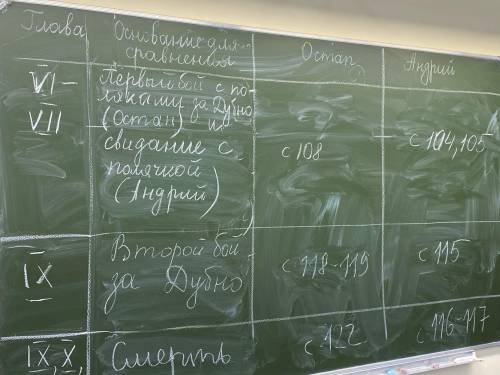 Глава Основание для сравнения Остап Андрий
VI – VII
Первый бой с по-
ляками за Дубно
(Остап) и
свидание с
полячкой
(Андрий)
с 108
с 104, 105
IX
Второй бой
за Дубно
с 118-119
с 115
IX, X,
Смерть
с 122
с 116-117